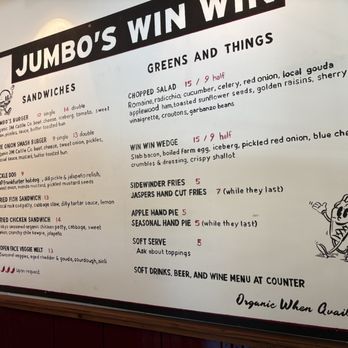 JUMBO'S WIN WIN
SANDWICHES
BURGER 12 single 14 double
Cattle Co. beef, cheese, iceberg, tomato, sweet
pickles, sauce, butter toasted bun
ONION SMASH BURGER 9 single 13 double
Cattle Co. beef, cheese, sweet onion, pickles,
mustard, butter toasted bun
DOG 9
frankfurter hotdog, dill pickle & jalapeño relish,
onion, mustard, pickled mustard seeds
FRIED FISH SANDWICH 13
local rock cod, cabbage slaw, dilly tartar sauce, lemon
FRIED CHICKEN SANDWICH 14
seasoned organic chicken patty, cabbage, sweet
crunchy chile jalapeño
OPEN FACE VEGGIE MELT 13
seasonal veggies, aged cheddar & gouda, sourdough,
upon request
GREENS AND THINGS
CHOPPED SALAD 15 / 9 half
Romaine, radicchio, cucumber, celery, red onion, local gouda
applewood ham, toasted sunflower seeds, golden raisins, sherry
vinaigrette, croutons, garbanzo beans
WIN WIN WEDGE 15 / 9 half
Slab bacon, boiled farm egg, iceberg, pickled red onion, blue
crumbles & dressing, crispy shallot
SIDEWINDER FRIES 5
JASPERS HAND CUT FRIES 7 (while they last)
APPLE HAND PIE 5
SEASONAL HAND PIE 5 (while they last)
SOFT SERVE 5
Ask about toppings
SOFT DRINKS, BEER, AND WINE MENU AT COUNTER
Organic When